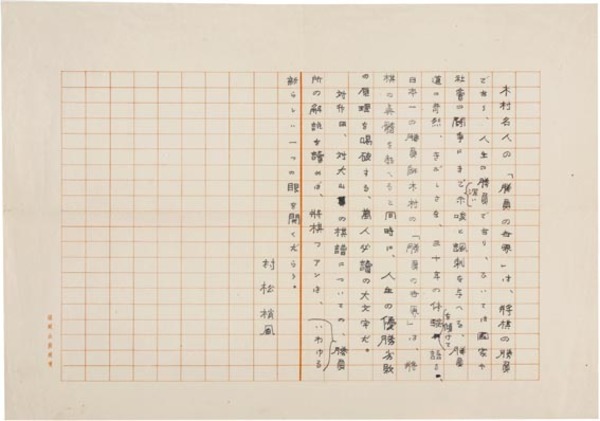 木村名人の「勝負の世界」は、将棋の勝負
であり、人生の勝負であり、ひいては國家や
社會の闘争にまで深い示唆と諷刺を与へる。勝負
道の苛烈、きびしさを、三十年の体験を傾けて語る。
日本一の勝負師木村の「勝負の世界」は将
棋の真髄を教へると同時に、人生の優勝劣敗
の原理を喝破する、萬人必讀の大文字だ。
対升田、対大山の棋譜についての、いわゆる勝負
所の解説を讀めば、将棋ファンは、
新らしい一つの眼を開くだらう。
村松梢風